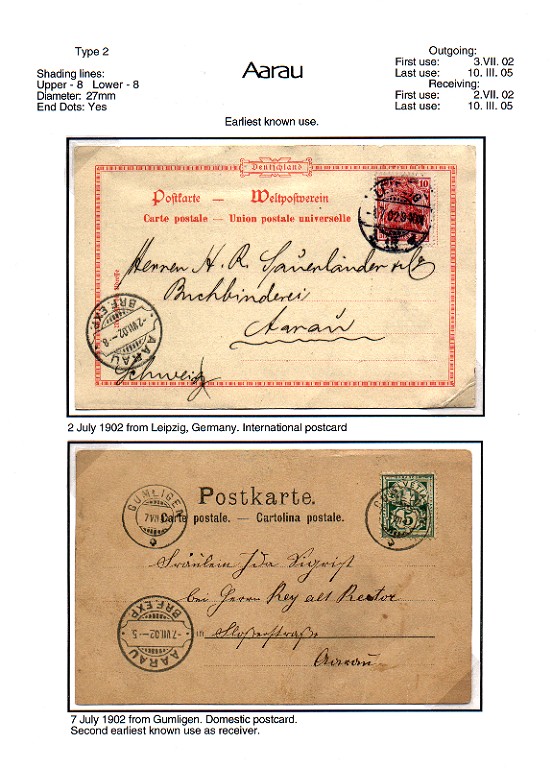 Type 2
Aarau
Shading lines:
Upper - 8 Lower - 8
Diameter: 27mm
End Dots: Yes
Outgoing:
First use: 3.VII. 02
Last use: 10. III. 05
Receiving:
First use: 2.VII. 02
Last use: 10. III. 05
Earliest known use.
Deutschland
Postkarte — Weltpostverein
Carte postale — Union postale universelle
10
Herren H. R. Sauerländer & Co
Buchbinderei
Aarau
Schweiz
BRF.EXP.
-2.VII.02-8
AARAU
2 July 1902 from Leipzig, Germany. International postcard
GÜMLIGEN
Postkarte.
Carte postale. — Cartolina postale.
5
Fräulein Ida Sigrist
bei Herrn Rey alt Rector
in
Aarau
BRF.EXP.
-7.VII.02-5
AARAU
7 July 1902 from Gumligen. Domestic postcard.
Second earliest known use as receiver.